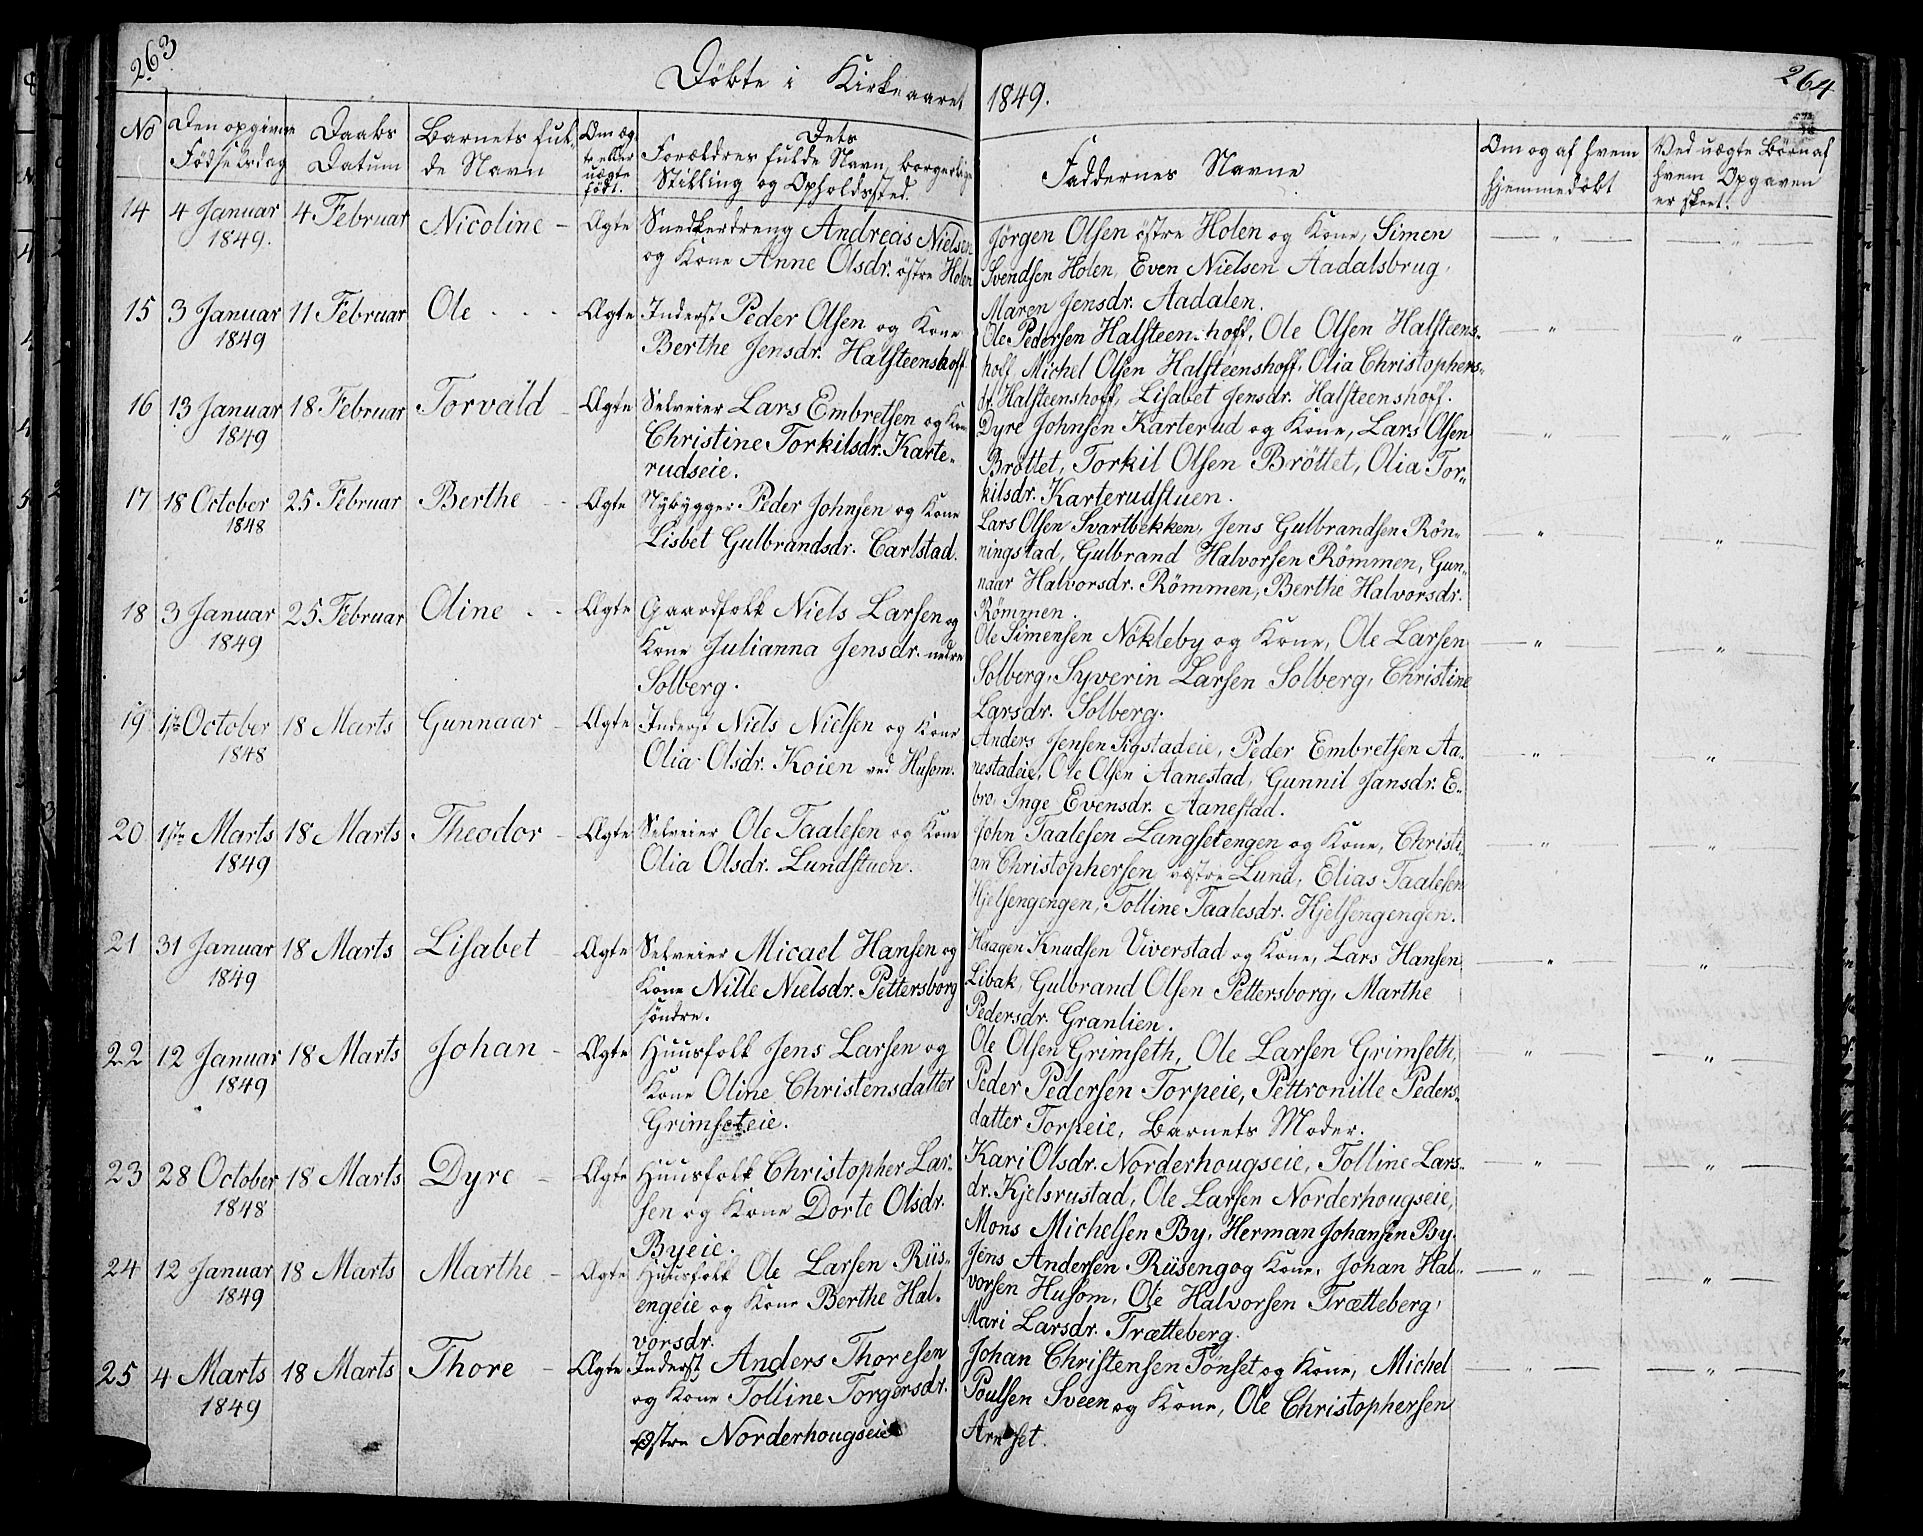 263
264
Döbte i Kirkeaaret 1849.
No
Den opgivne Födselsdag
Daabs Datum
Barnets fulde Navn
Om ægte eller uægte födt.
Dets Forældres fulde Navn, borgerlige Stilling og Opholdssted.
Faddernes Navne
Om og af hvem hjemmedöbt
Ved uægte Börn af hvem Opgaven er skeet.
14 4 Januar 1849. 4 Februar Nicoline - Ægte
Snedkerdreng Andreas Nielsen
og Kone Anne Olsdr. östre Holen
Jörgen Olsen östre Holen og Kone, Simen
Svendsen Holen, Even Nielsen Aadalsbrug,
Maren Jensdr. Aadalen.
15 3 Januar 1849 11 Februar Ole - - - Ægte
Inderst Peder Olsen og Kone
Berthe Jensdr. Halsteenshoff
Ole Pedersen Halsteenshoff, Ole Olsen Halsteens-
hoff, Michel Olsen Halsteenshoff, Olia Christophers-
dr. Halsteenshoff, Lisabet Jensdr. Halsteenshoff.
16 13 Januar 1849 18 Februar Torvald - Ægte
Selveier Lars Embretsen og Kone
Christine Torkilsdr. Karte-
rudseie.
Dyre Johnsen Karterud og Kone, Lars Olsen
Bröttet, Torkil Olsen Bröttet, Olia Tor-
kilsdr. Karterudstuen.
17 18 October 1848 25 Februar Berthe - - Ægte
Nybygger Peder Johnsen og Kone
Lisbet Gulbrandsdr. Carlstad.
Lars Olsen Svartbekken, Jens Gulbrandsen Rön-
ningstad, Gulbrand Halvorsen Römmen, Gun-
naar Halvorsdr. Römmen, Berthe Halvorsdr.
Römmen.
18 3 Januar 1849 25 Februar Oline - - Ægte
Gaardfolk Niels Larsen og
Kone Julianna Jensdr. nedre
Solberg.
Ole Simensen Nökleby og Kone, Ole Larsen
Solberg, Syverin Larsen Solberg, Christine
Larsdr. Solberg.
19 1ste October 1848 18 Marts Gunnaar - Ægte
Inderst Niels Nielsen og Kone
Olia Olsdr. Koien ved Husom.
Anders Jensen Sigstadeie, Peder Embretsen Aa-
nestadeie, Ole Olsen Aanestad, Gunnil Jansdr. E-
bro, Inge Evensdr. Aanestad.
20 1ste Marts 1849 18 Marts Theodor - Ægte
Selveier Ole Taalesen og Kone
Olia Olsdr. Lundstuen.
John Taalesen Langsetengen og Kone, Christi-
an Christophersen vestre Lund, Elias Taalesen
Hjelsengengen, Tolline Taalesdr. Hjelsengengen.
21 31 Januar 1849 18 Marts Lisabet - Ægte
Selveier Micael Hansen og
Kone Nille Nielsdr. Pettersborg
söndre.
Haagen Knudsen Viverstad og Kone, Lars Hansen
Libak, Gulbrand Olsen Pettersborg, Marthe
Pedersdr. Granlien.
22 12 Januar 1849 18 Marts Johan - Ægte
Huusfolk Jens Larsen og
Kone Oline Christensdatter
Grimseteie.
Ole Olsen Grimseth, Ole Larsen Grimseth,
Peder Pedersen Torpeie, Pettronille Peders-
datter Torpeie, Barnets Moder.
23 28 October 1848 18 Marts Dyre - Ægte
Huusfolk Christopher Lar-
sen og Kone Dorte Olsdr.
Byeie.
Kari Olsdr. Norderhougseie, Tolline Lars-
dr. Kjelsrustad, Ole Larsen Norderhougseie,
Mons Michelsen By, Herman Johansen By.
24 12 Januar 1849 18 Marts Marthe - Ægte
Huusfolk Ole Larsen Rüs-
engeie og Kone Berthe Hal-
vorsdr.
Jens Andersen Rüseng og Kone, Johan Hal-
vorsen Husom, Ole Halvorsen Trætteberg,
Mari Larsdr. Trætteberg.
25 4 Marts 1849 18 Marts Thore - Ægte
Inderst Anders Thoresen
og Kone Tolline Torgersdr.
Østre Norderhougseie
Johan Christensen Tönset og Kone, Michel
Poulsen Sveen og Kone, Ole Christophersen
Arnset.